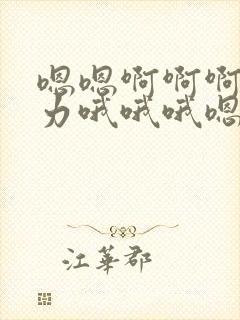 嗯嗯啊啊啊
力哦哦哦嗯
江華郡